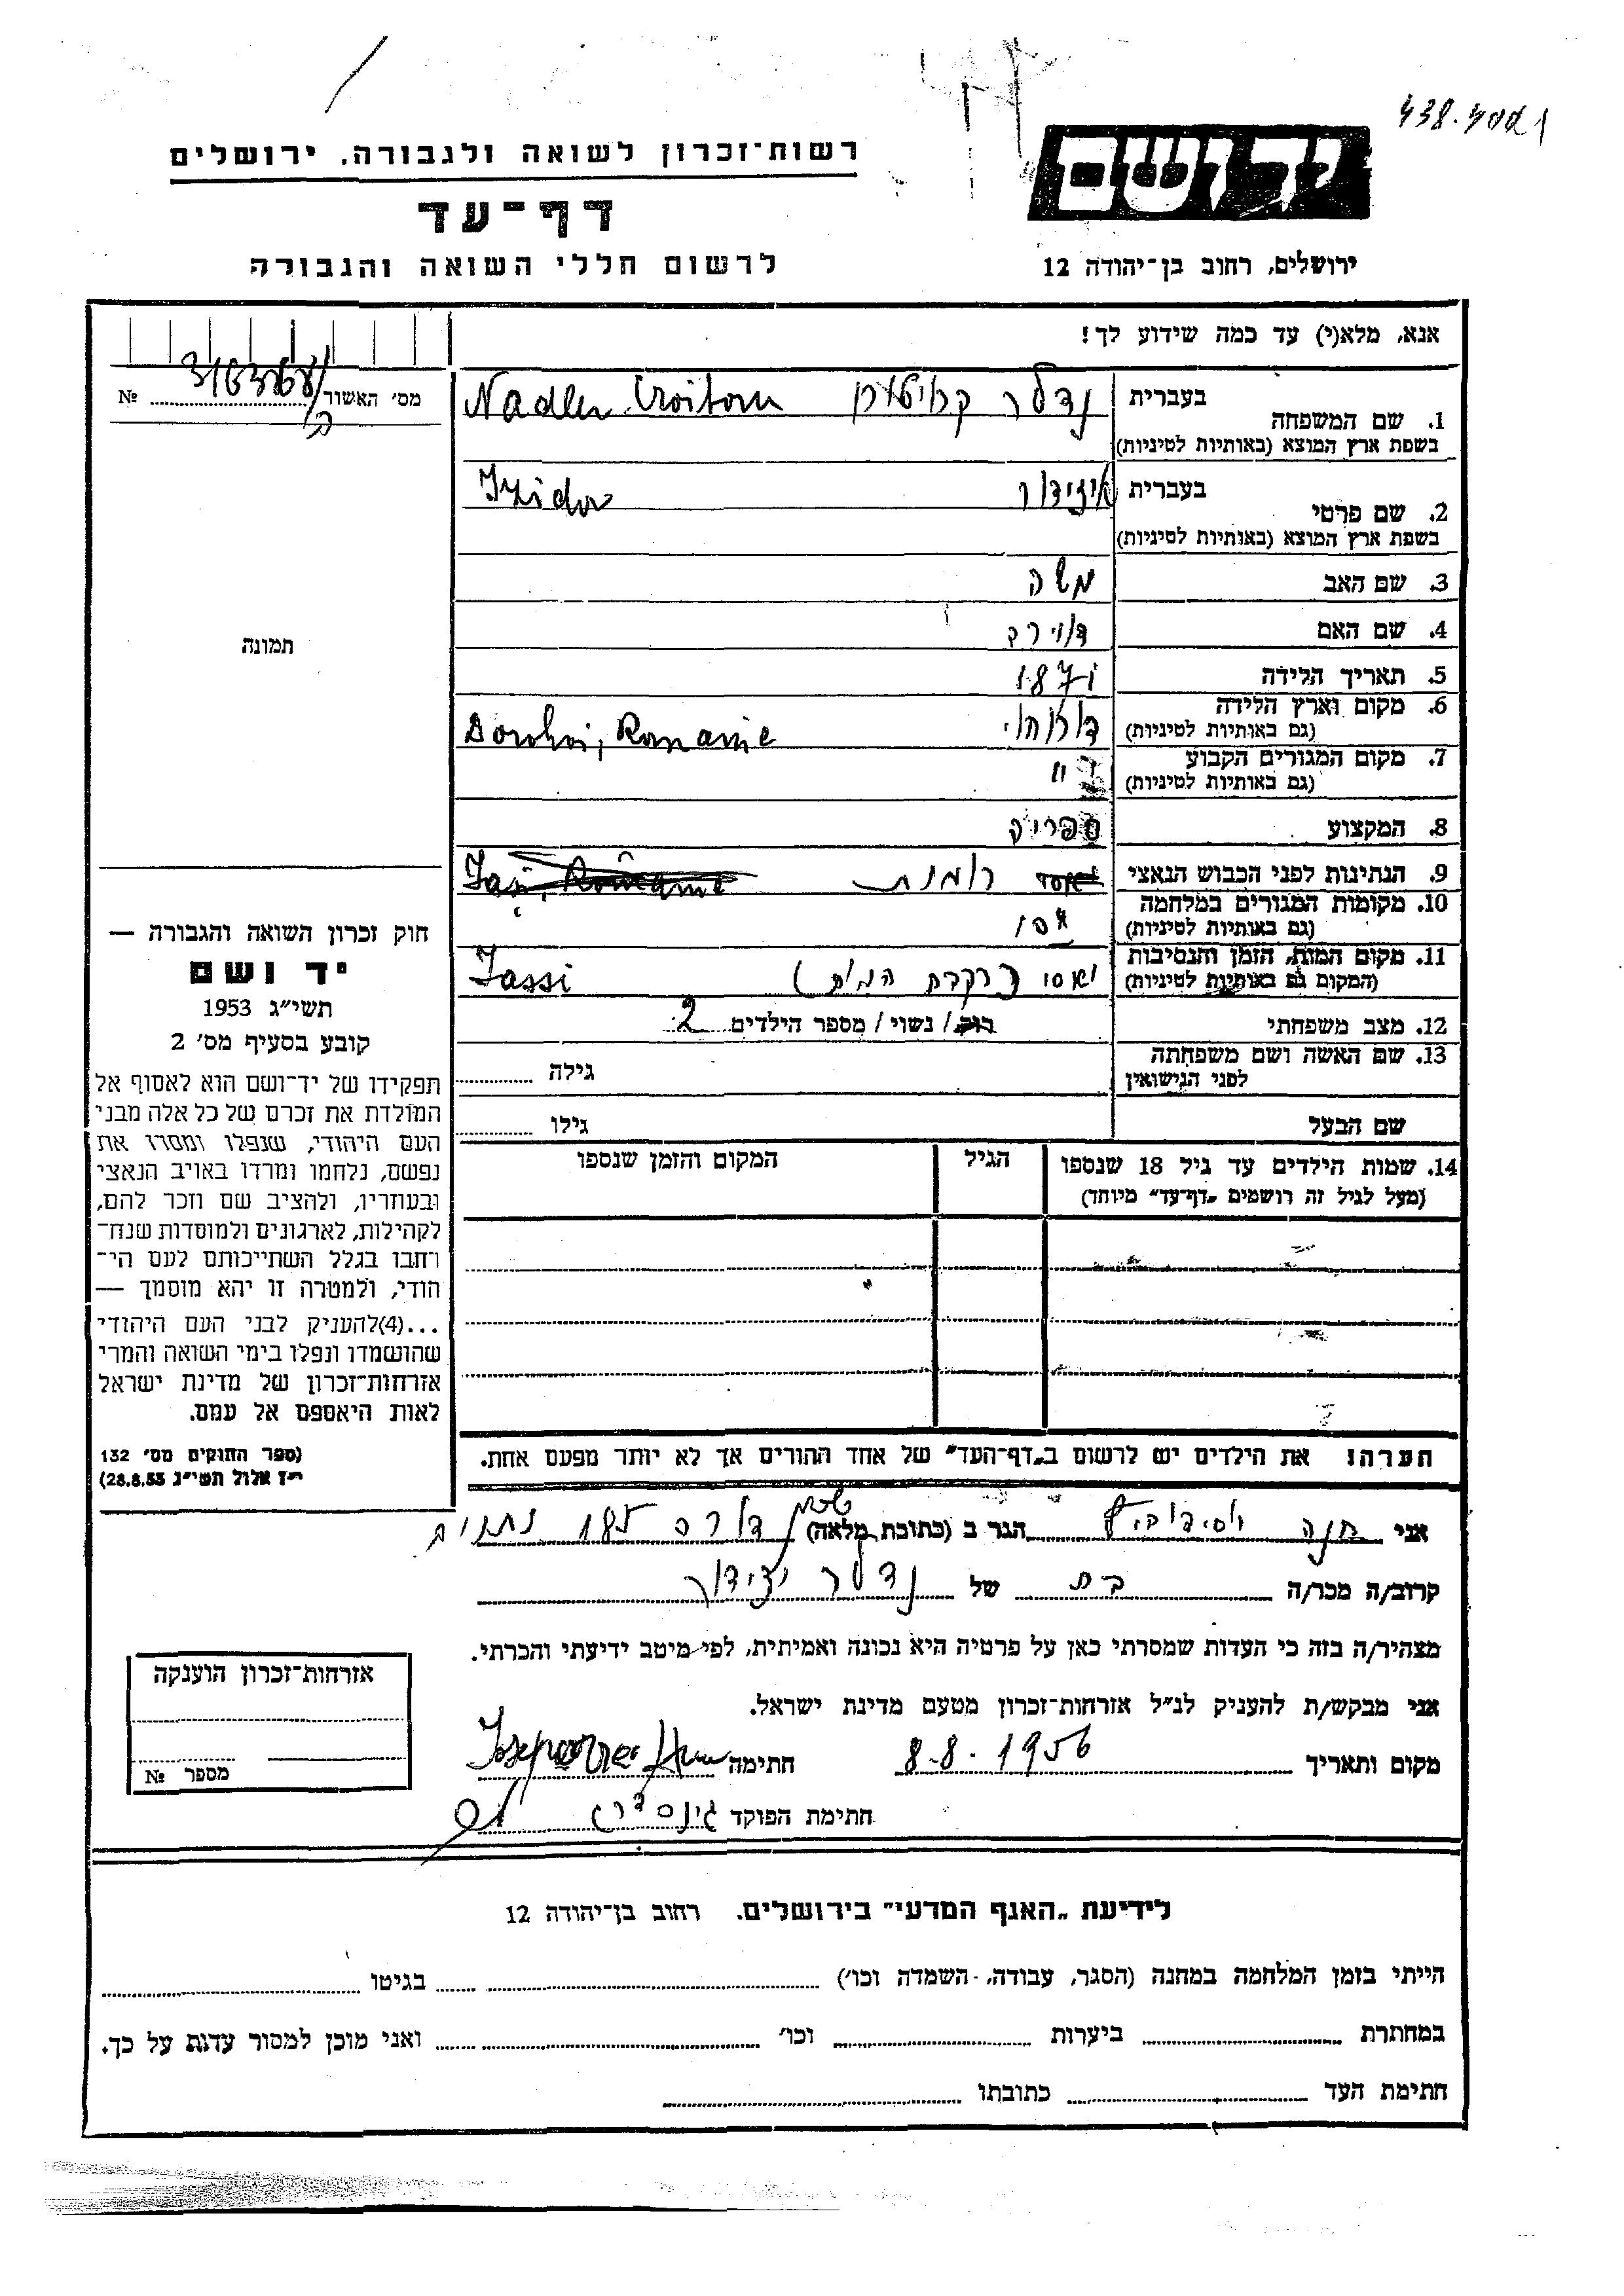 438.4001
רשות-זכרון לשואה ולגבורה. ירושלים
יד ושם
דף-עד
לרשום חללי השואה והגבורה
ירושלים, רחוב בן-יהודה 12
אנא, מלא(י) עד כמה שידוע לך!
מס׳ האשור №
1. שם המשפחה בעברית נדלר קרויטורו Nadler Croitoru
בשפת ארץ המוצא (באותיות לטיניות)
2. שם פרטי בעברית איזידור Izidor
בשפת ארץ המוצא (באותיות לטיניות)
3. שם האב משה
4. שם האם דוירה
5. תאריך הלידה 1871
6. מקום וארץ הלידה דורוהוי Dorohoi, Romanie
(גם באותיות לטיניות)
7. מקום המגורים הקבוע "
(גם באותיות לטיניות)
8. המקצוע
9. הנתינות לפני הכבוש הנאצי רומנית Iaşi, România
10. מקומות המגורים במלחמה
(גם באותיות לטיניות)
11. מקום המות, הזמן והנסיבות יאסי (רקבת המות) Iassi
(המקום גם באותיות לטיניות)
12. מצב משפחתי רוק/ נשוי/ מספר הילדים 2
13. שם האשה ושם משפחתה גילה
לפני הנישואין
שם הבעל גילו
14. שמות הילדים עד גיל 18 שנספו הגיל המקום והזמן שנספו
(מעל לגיל זה רושמים „דף-עד" מיוחד)
הערה: את הילדים יש לרשום ב„דף-העד" של אחד ההורים אך לא יותר מפעם אחת.
תמונה
חוק זכרון השואה והגבורה —
יד ושם
תשי״ג 1953
קובע בסעיף מס׳ 2
תפקידו של יד-ושם הוא לאסוף אל
המולדת את זכרם של כל אלה מבני
העם היהודי, שנפלו ומסרו את
נפשם, נלחמו ומרדו באויב הנאצי
ובעוזריו, ולהציב שם וזכר להם,
לקהילות, לארגונים ולמוסדות שנח-
רחבו בגלל השתייכותם לעם הי-
הודי, ולמטרה זו יהא מוסמך —
...(4)להעניק לבני העם היהודי
שהושמדו ונפלו בימי השואה והמרי
אזרחות-זכרון של מדינת ישראל
לאות היאספם אל עמם.
(ספר החוקים מס׳ 132
י״ז אלול תשי״ג 28.8.53)
אני חנה הגר ב (כתובת מלאה) שכון דורה 185 נתניה
קרוב/ה מכר/ה בת של נדלר יצידור
מצהיר/ה בזה כי העדות שמסרתי כאן על פרטיה היא נכונה ואמיתית, לפי מיטב ידיעתי והכרתי.
אני מבקש/ת להעניק לנ״ל אזרחות-זכרון מטעם מדינת ישראל.
מקום ותאריך 8-8-1956 חתימה
חתימת הפוקד
אזרחות-זכרון הוענקה
מספר №
לידיעת „האגף המדעי" בירושלים. רחוב בן-יהודה 12
הייתי בזמן המלחמה במחנה (הסגר, עבודה, השמדה וכו׳) בגיטו
במחתרת ביערות וכו׳ ואני מוכן למסור עדות על כך.
חתימת העד כתובתו